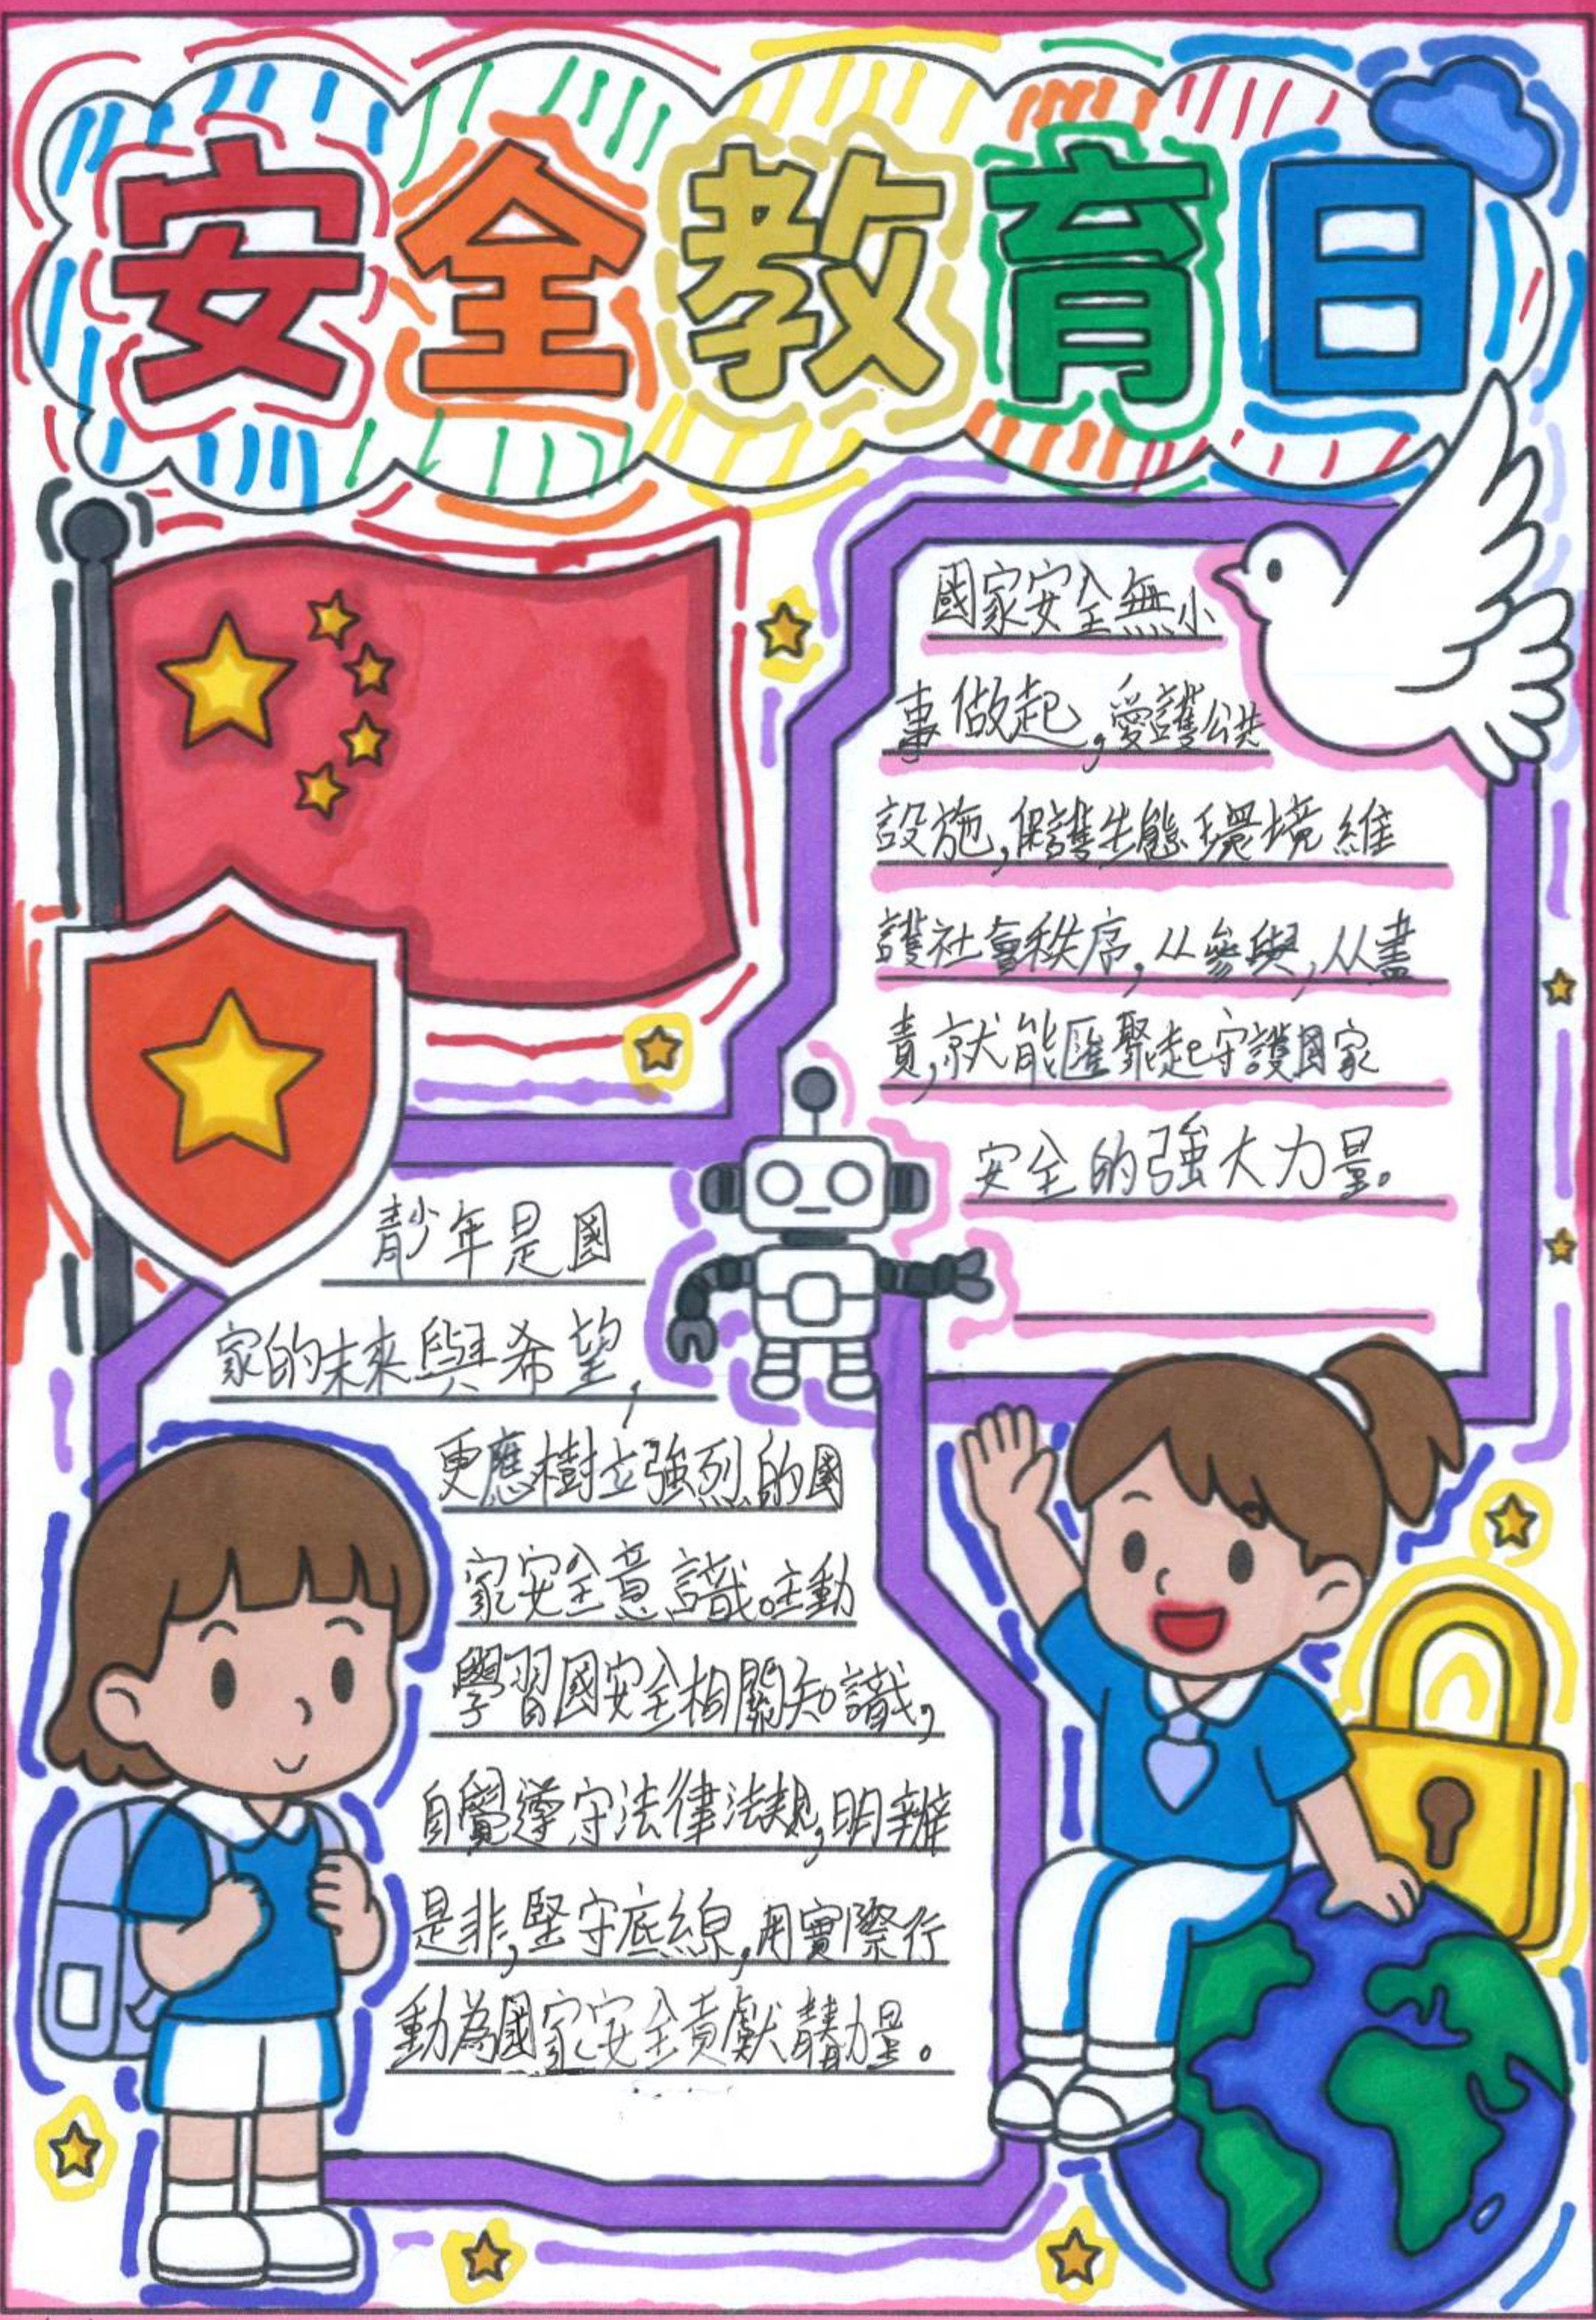 安全教育日
國家安全無小
事做起，愛護公共
設施，保護生態環境維
護社會秩序，从參與，从盡
責，就能匯聚起守護國家
安全的強大力量。
青少年是國
家的未來與希望，
更應樹立強烈的國
家安全意識。主動
學習國安全相關知識，
自覺遵守法律法規，明辨
是非，堅守底線，用實際行
動為國家安全貢獻青春力量。